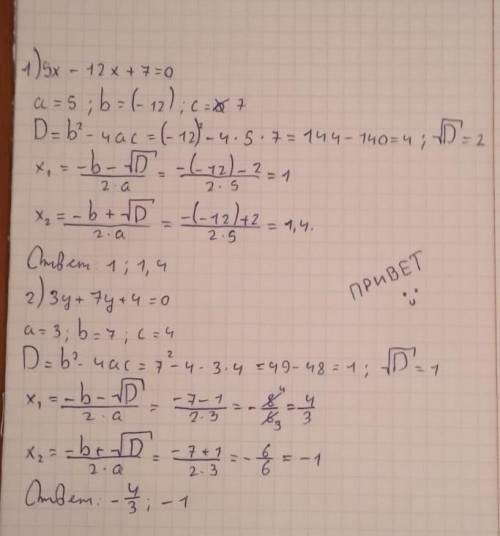 1) 5x - 12x + 7 = 0
a = 5 ; b = (-12) ; c = 7
D = b² - 4ac = (-12)² - 4 · 5 · 7 = 144 - 140 = 4 ; √D = 2
x₁ = (-b - √D)/(2·a) = (-(-12) - 2)/(2·5) = 1
x₂ = (-b + √D)/(2·a) = (-(-12) + 2)/(2·5) = 1,4.
Ответ 1 ; 1,4
ПРИВЕТ
2) 3y + 7y + 4 = 0
a = 3 ; b = 7 ; c = 4
D = b² - 4ac = 7² - 4 · 3 · 4 = 49 - 48 = 1 ; √D = 1
x₁ = (-b - √D)/(2·a) = (-7 - 1)/(2·3) = - 8⁴/6₃ = 4/3
x₂ = (-b + √D)/(2·a) = (-7 + 1)/(2·3) = - 6/6 = -1
Ответ: - 4/3 ; -1